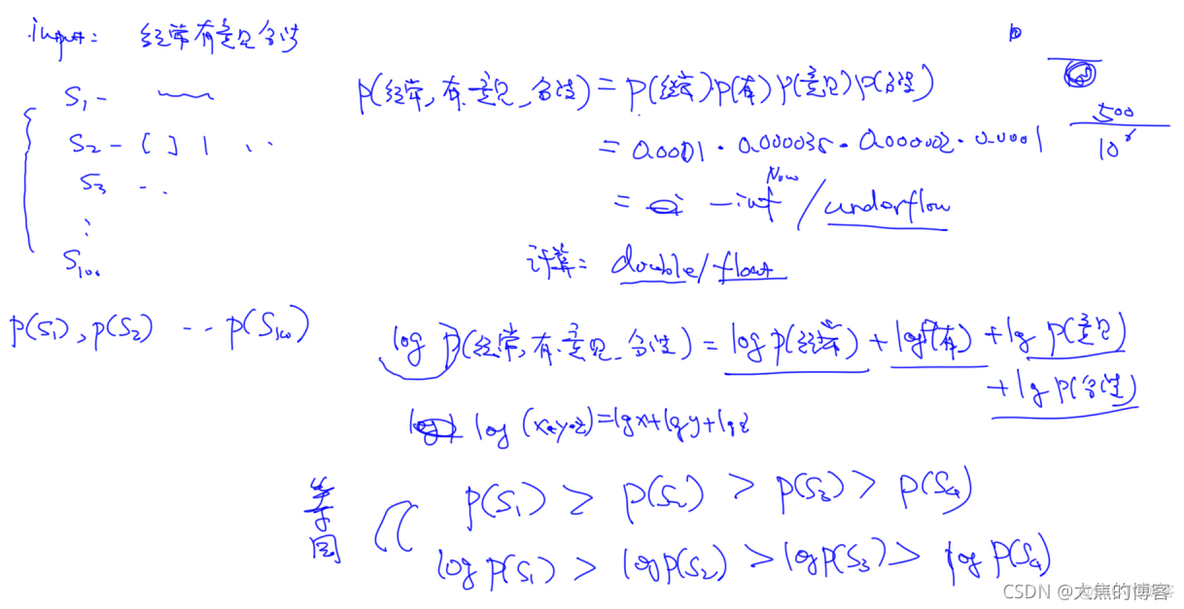 input: 经常有意见分歧
S₁ -
S₂ - [ ] | ..
S₃ - ..
⋮
S₁₀₀
p(S₁), p(S₂) -- p(S₁₀₀)
p(经常, 有, 意见, 分歧) = p(经常) p(有) p(意见) p(分歧)
= 0.0001 · 0.000035 · 0.000002 · 0.0001
= -inf / underflow
计算: double/float
500
log p(经常, 有, 意见, 分歧) = log p(经常) + log p(有) + log p(意见)
+ log p(分歧)
log (x·y·z) = log x + log y + log z
p(S₁) ≥ p(S₂) > p(S₃) > p(S₄)
等同
log p(S₁) > log p(S₂) > log p(S₃) > log p(S₄)
CSDN @大焦的博客